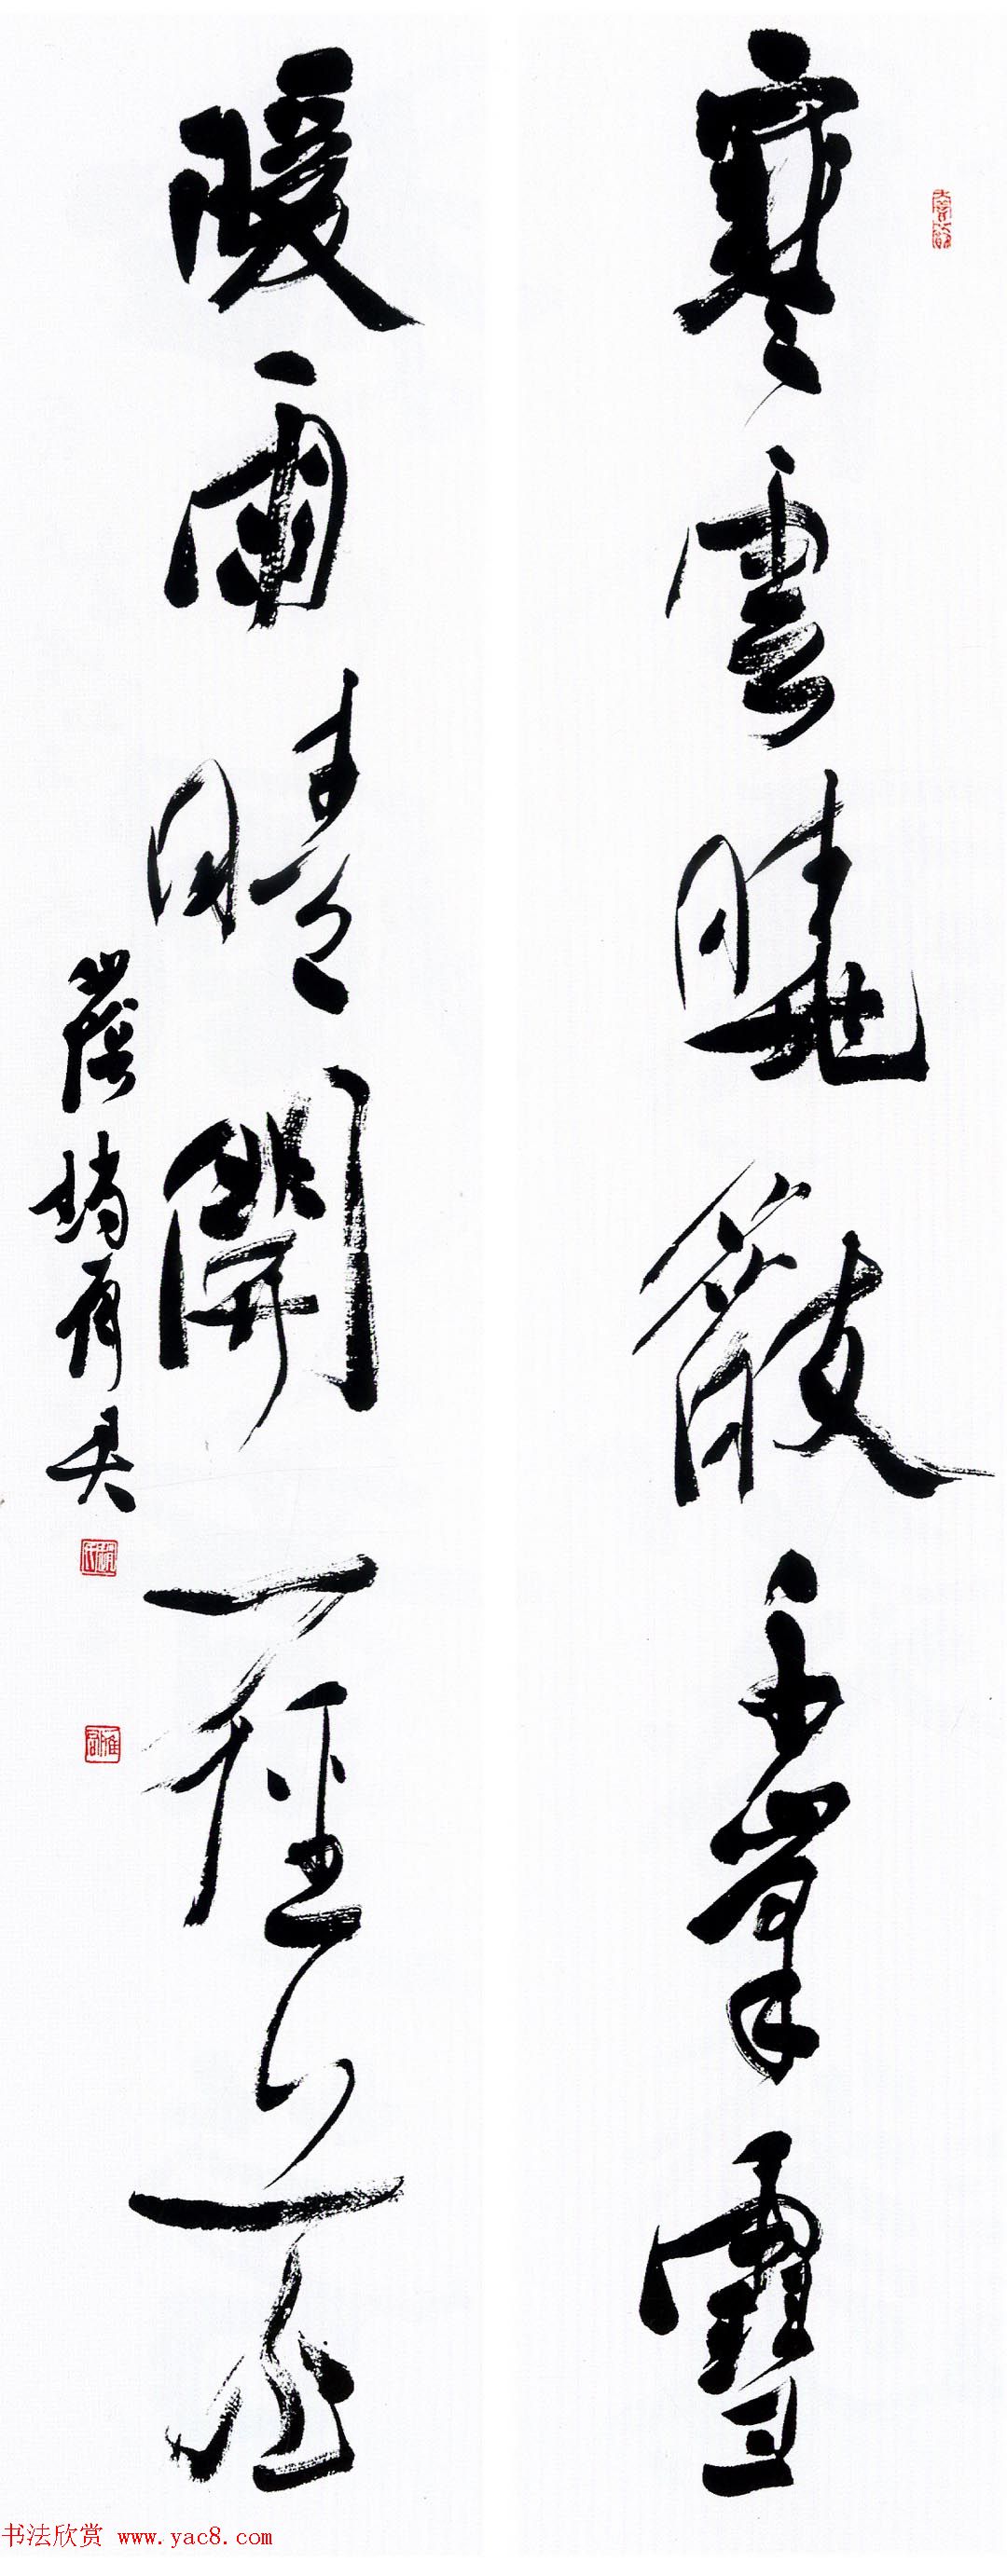 寒雲曉散千峯雪
暖雨晴開一徑花
書法欣赏 www.yac8.com